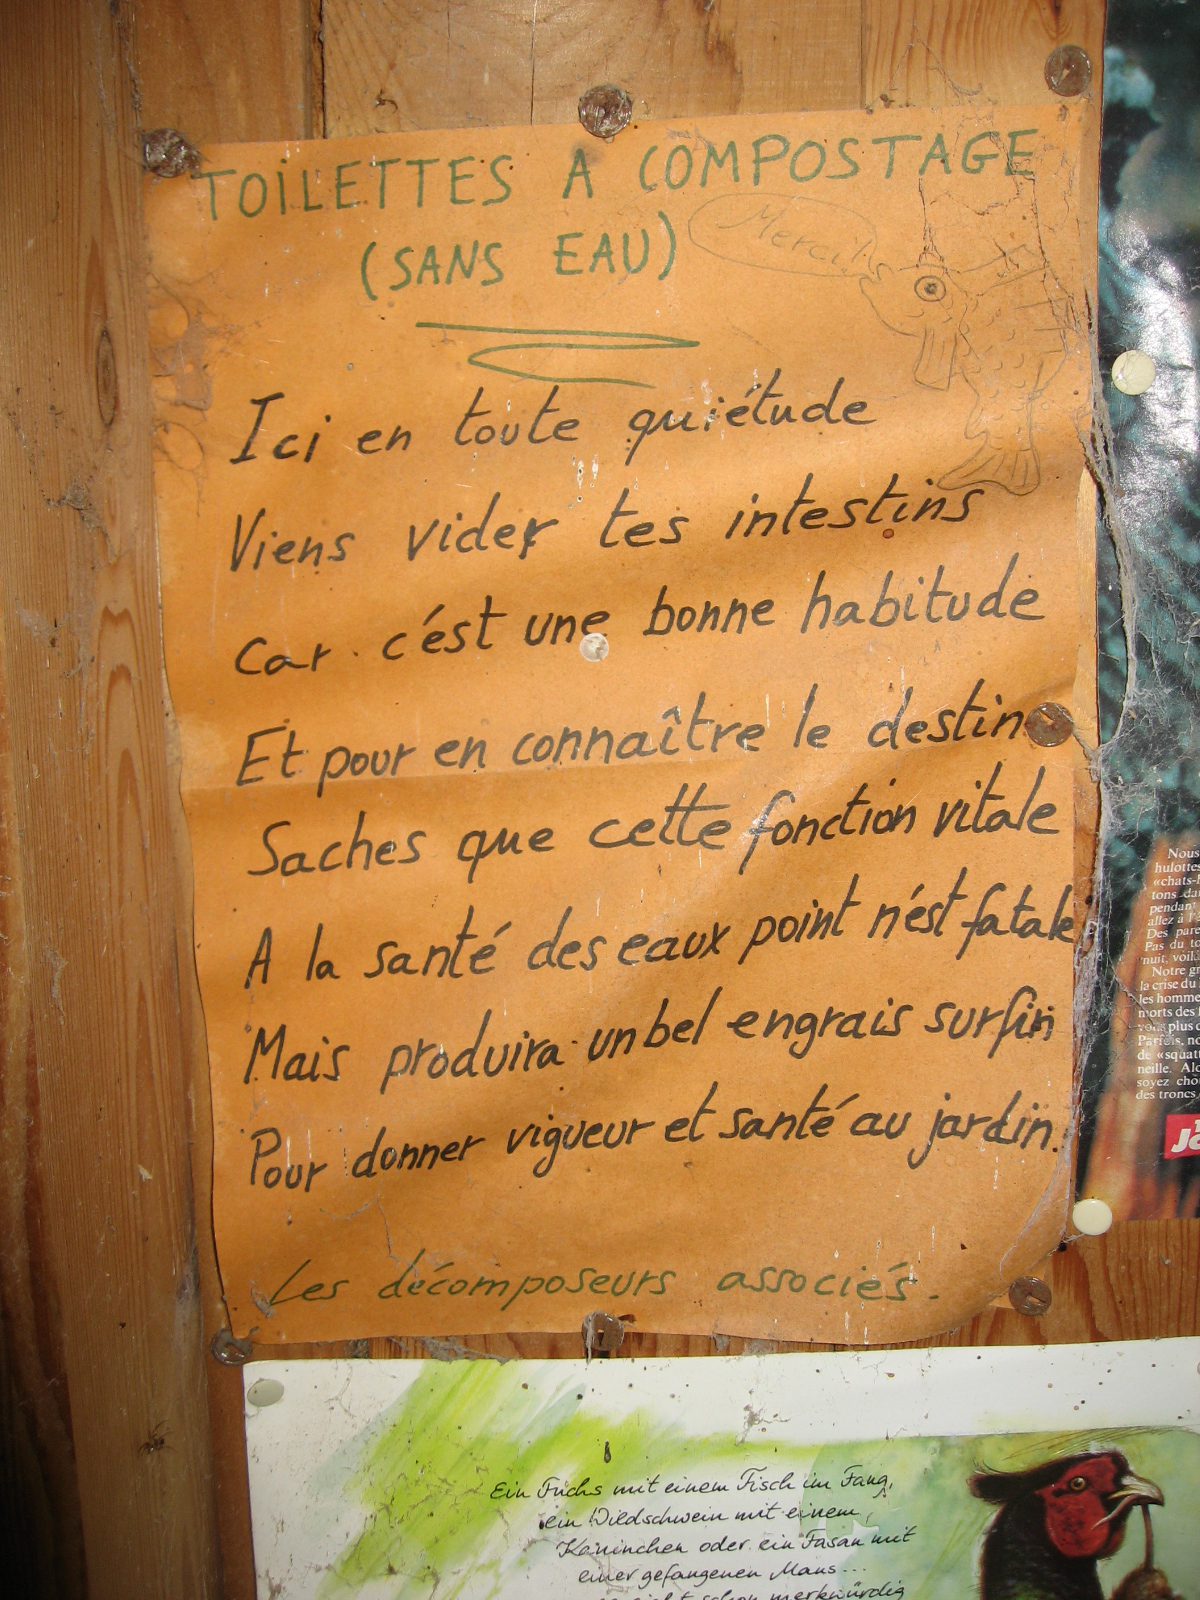 TOILETTES A COMPOSTAGE
(SANS EAU)
Merci!
Ici en toute quiétude
Viens vider tes intestins
Car c'est une bonne habitude
Et pour en connaître le destin
Saches que cette fonction vitale
A la santé des eaux point n'est fatale
Mais produira un bel engrais surfin
Pour donner vigueur et santé au jardin.
Les décomposeurs associés.
Nous
hulottes
«chats-h
tons da
pendant
allez à l'a
Des pare
Pas du to
nuit, voilà
Notre gr
la crise du
les homme
morts des
vous plus
Parfois, no
de «squatt
neille. Alo
soyez cho
des troncs
Ein Fuchs mit einem Fisch im Fang,
ein Wildschwein mit einem
Kaninchen oder ein Fasan mit
einer gefangenen Maus...
schon merkwürdig